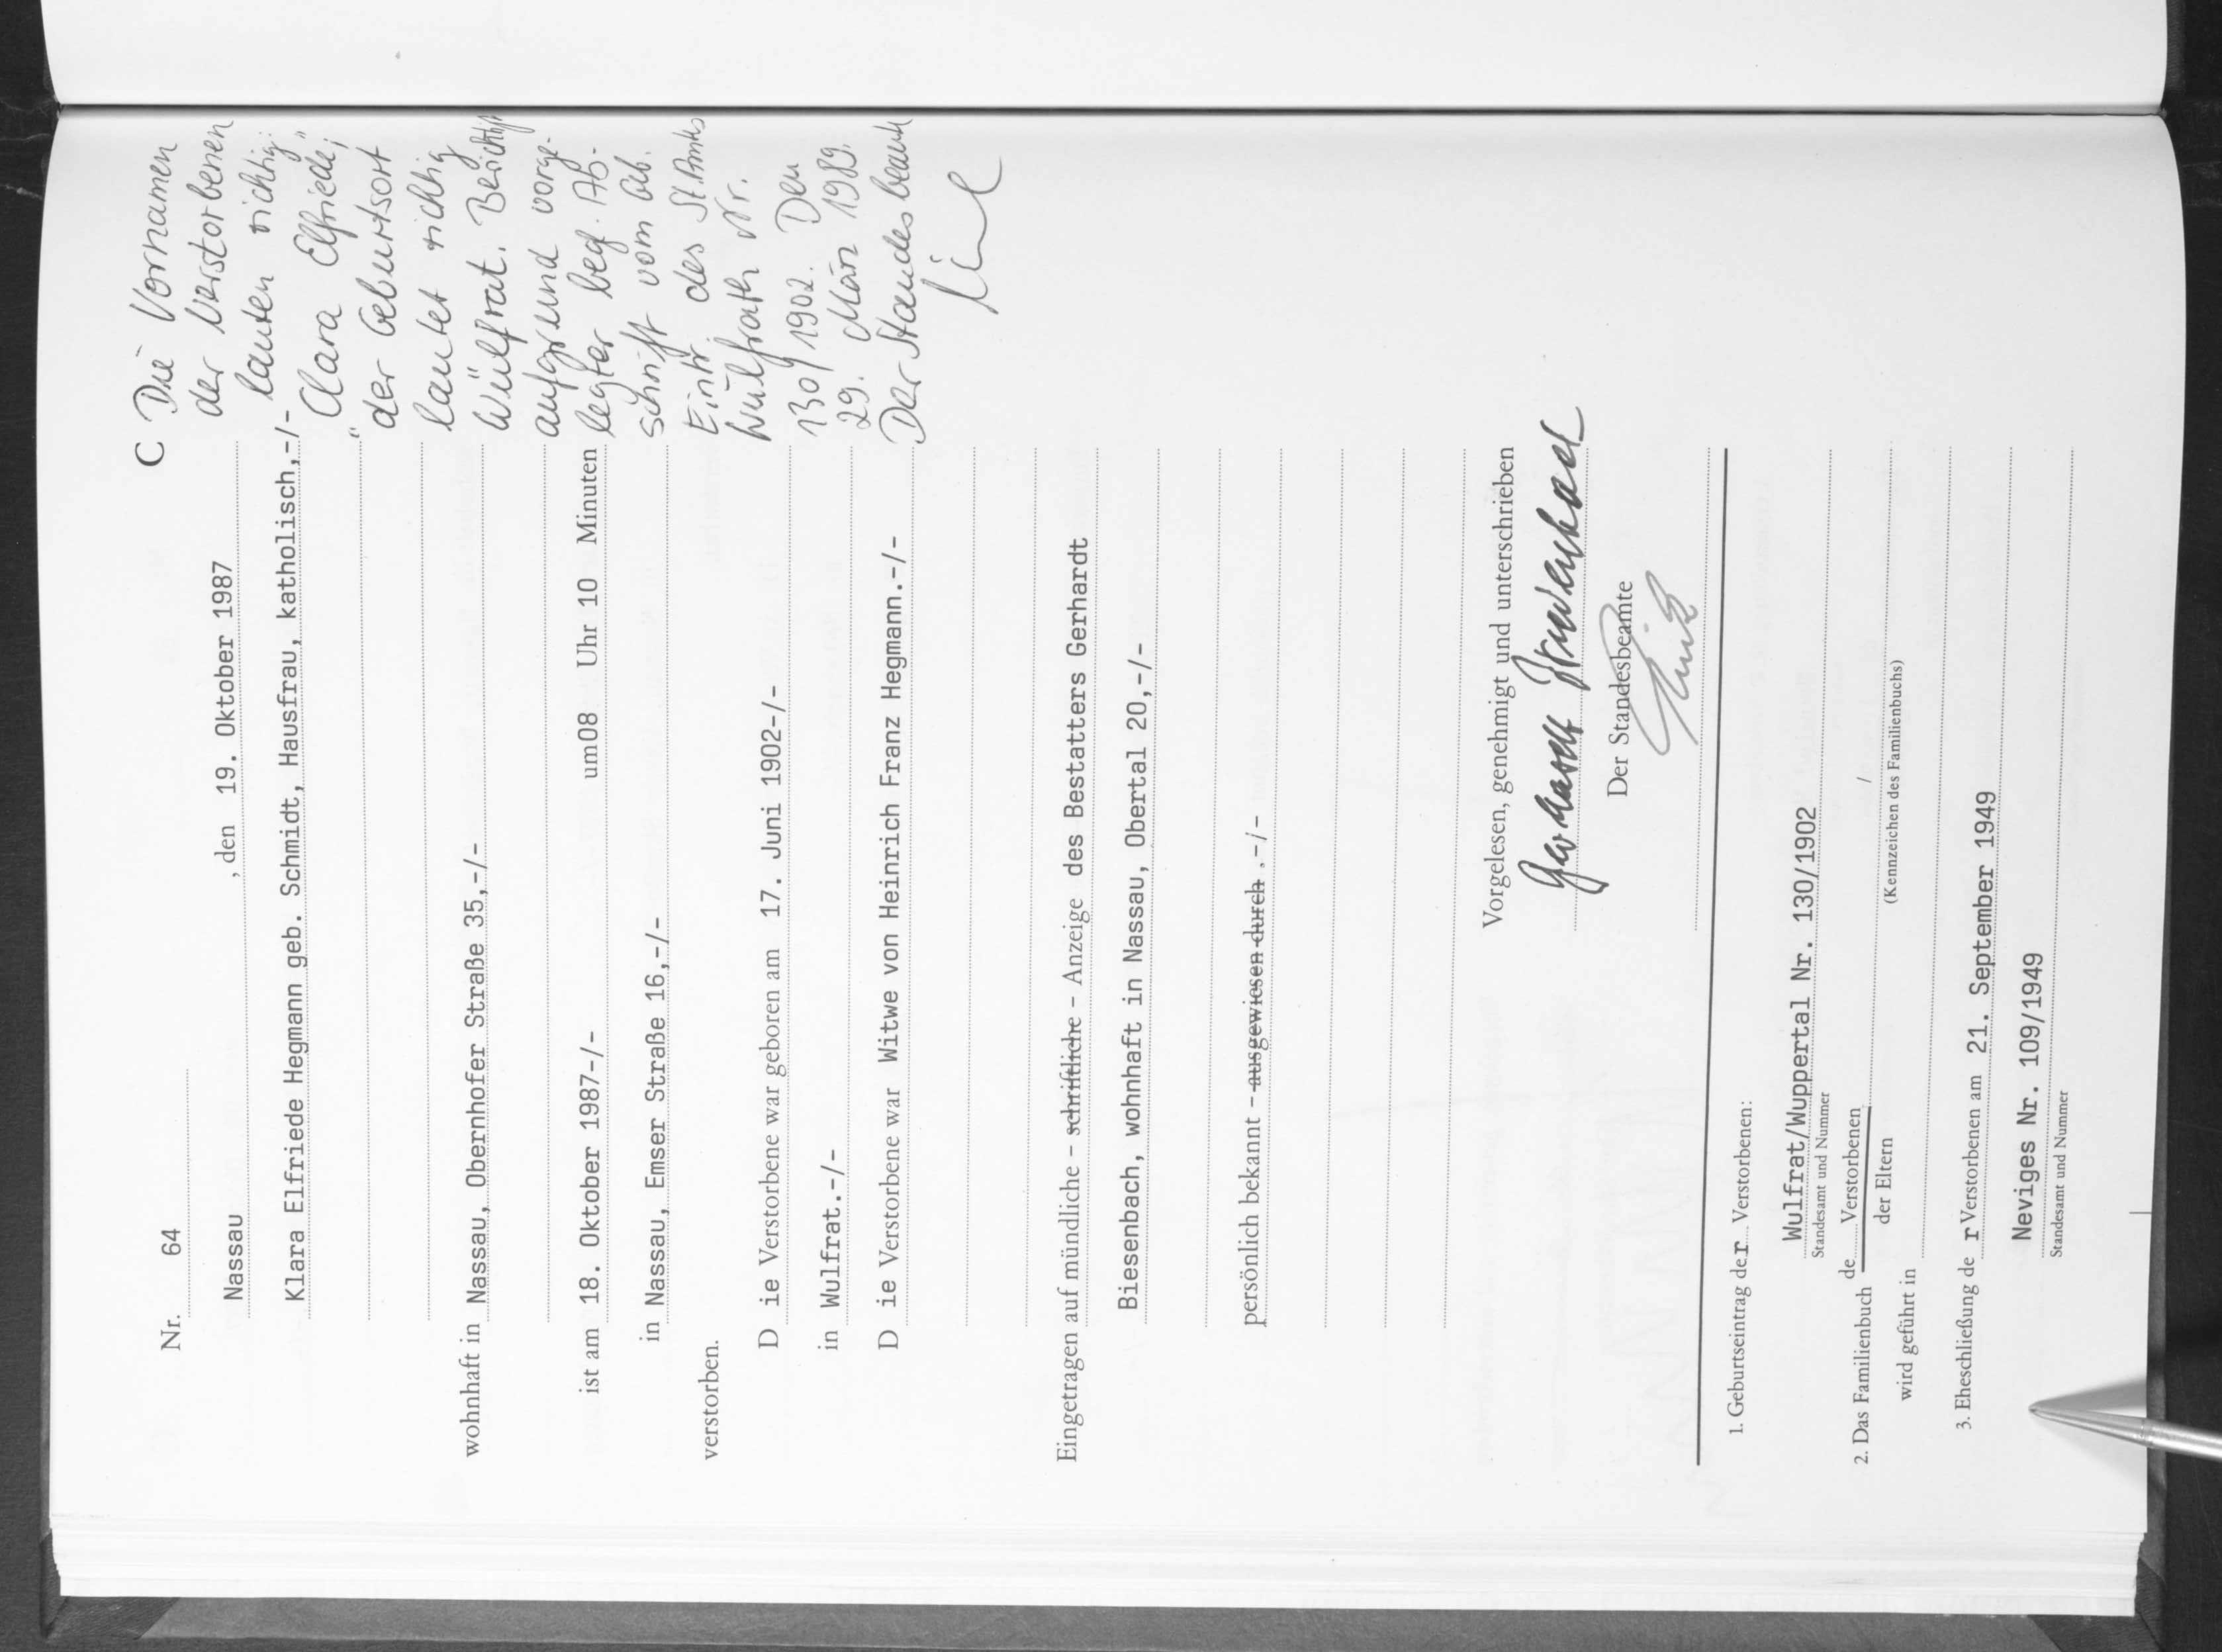 Nr. 64
C
Nassau , den 19. Oktober 1987
Klara Elfriede Hegmann geb. Schmidt, Hausfrau, katholisch,-/-
wohnhaft in Nassau, Obernhofer Straße 35,-/-
ist am 18. Oktober 1987-/- um 08 Uhr 10 Minuten
in Nassau, Emser Straße 16,-/-
verstorben.
D ie Verstorbene war geboren am 17. Juni 1902-/-
in Wulfrat.-/-
D ie Verstorbene war Witwe von Heinrich Franz Hegmann.-/-
Eingetragen auf mündliche – schriftliche – Anzeige des Bestatters Gerhardt
Biesenbach, wohnhaft in Nassau, Obertal 20,-/-
persönlich bekannt – ausgewiesen durch .-/-
Vorgelesen, genehmigt und unterschrieben
Der Standesbeamte
1. Geburtseintrag der Verstorbenen:
Wulfrat/Wuppertal Nr. 130/1902
Standesamt und Nummer
2. Das Familienbuch de Verstorbenen /
der Eltern
(Kennzeichen des Familienbuchs)
wird geführt in
3. Eheschließung de r Verstorbenen am 21. September 1949
Neviges Nr. 109/1949
Standesamt und Nummer
Die Vornamen
der Verstorbenen
lauten richtig:
"Clara Elfriede",
der Geburtsort
lautet richtig
Wülfrat.
aufgrund vorge-
legter begl. Ab-
schrift vom Geb.
Eintr. des St.Amts
Wülfrath Nr.
130/1902. Den
29. März 1989.
Der Standesbeamte